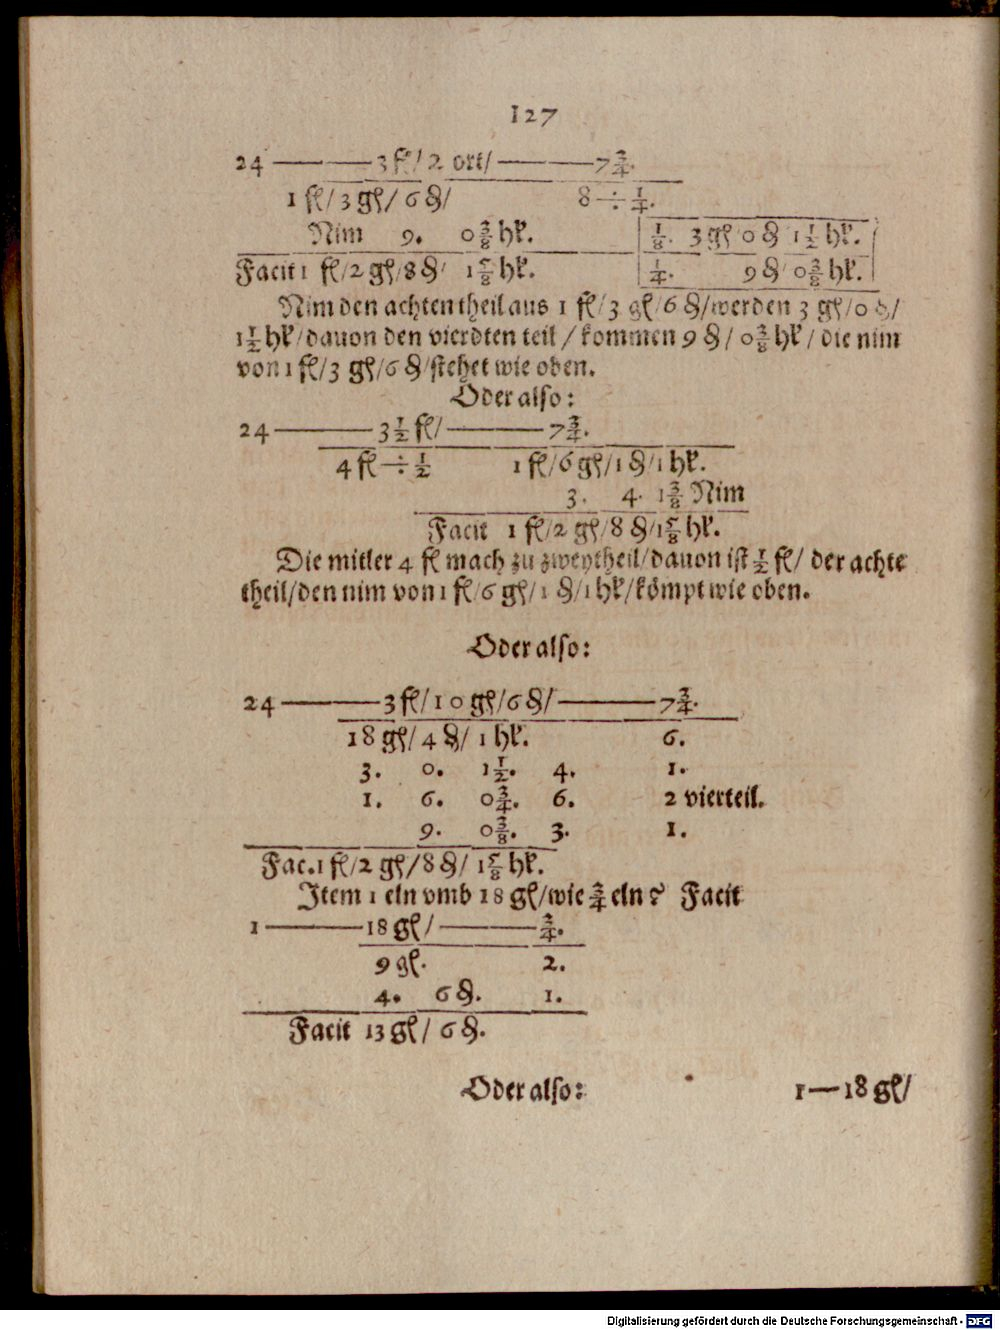 127
24 ——— 3 fl/ 2 ort/ ——— 7 3/4.
1 fl/ 3 gl/ 6 ₰/ 8 ÷ 1/4.
Nim 9. 0 3/8 hl. 1/8. 3 gl/ 0 ₰/ 1 1/2 hl.
Facit 1 fl/ 2 gl/ 8 ₰/ 1 5/8 hl. 1/4. 9 ₰/ 0 3/8 hl.
Nim den achten theil aus 1 fl/ 3 gl/ 6 ₰/ werden 3 gl/ 0 ₰/
1 1/2 hl/ dauon den vierdten teil / kommen 9 ₰/ 0 3/8 hl / die nim
von 1 fl/ 3 gl/ 6 ₰/ stehet wie oben.
Oder also:
24 ——— 3 1/2 fl/ ——— 7 3/4.
4 fl ÷ 1/2 1 fl/ 6 gl/ 1 ₰/ 1 hl.
3. 4. 1 3/8 Nim
Facit 1 fl/ 2 gl/ 8 ₰/ 1 5/8 hl.
Die mitler 4 fl mach zu zweytheil/ dauon ist 1/2 fl/ der achte
theil/ den nim von 1 fl/ 6 gl/ 1 ₰/ 1 hl/ kömpt wie oben.
Oder also:
24 ——— 3 fl/ 10 gl/ 6 ₰/ ——— 7 3/4.
18 gl/ 4 ₰/ 1 hl. 6.
3. 0. 1 1/2. 4. 1.
1. 6. 0 3/4. 6. 2 vierteil.
9. 0 3/8. 3. 1.
Fac. 1 fl/ 2 gl/ 8 ₰/ 1 5/8 hl.
Item 1 eln vmb 18 gl/ wie 3/4 eln? Facit
1 ——— 18 gl/ ——— 3/4.
9 gl. 2.
4. 6 ₰. 1.
Facit 13 gl/ 6 ₰.
Oder also: 1 — 18 gl/
Digitalisierung gefördert durch die Deutsche Forschungsgemeinschaft - DFG